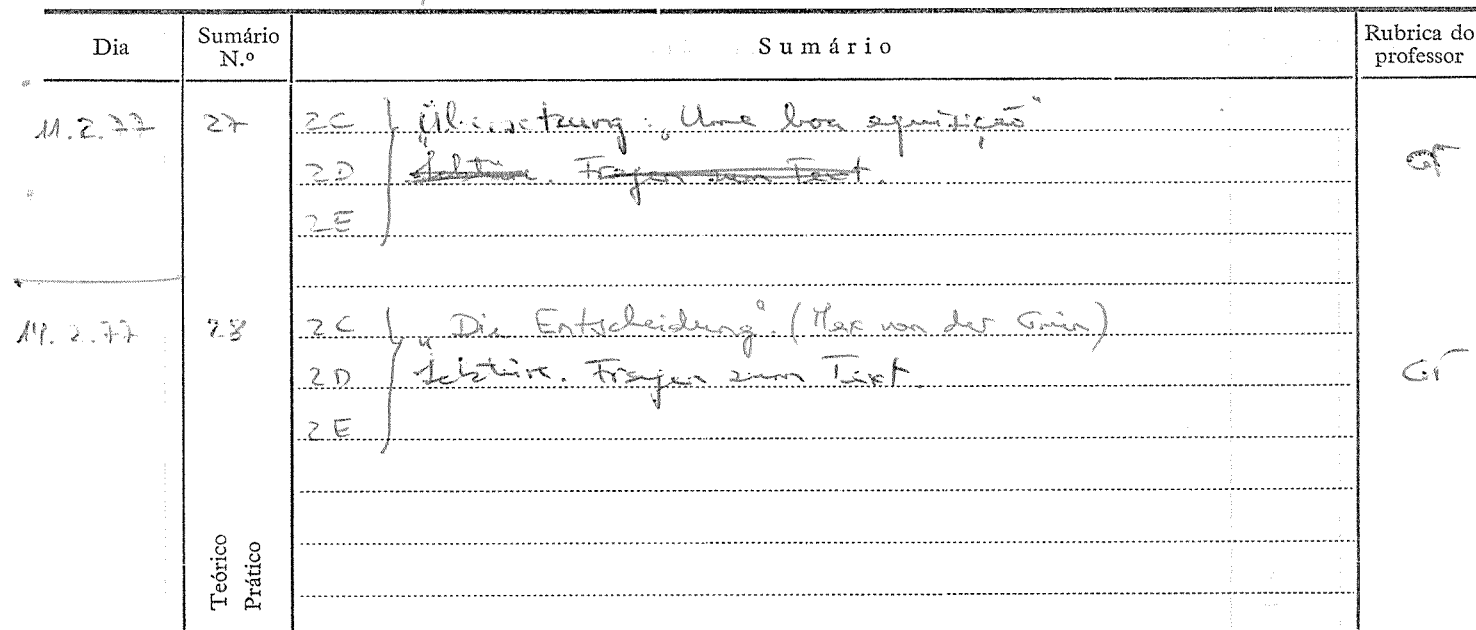 Dia Sumário N.º Sumário Rubrica do professor
11.2.77 27 2C Übersetzung: „Uma boa aquisição“
2D Lektüre. Fragen zum Text.
2E
14.2.77 28 2C „Die Entscheidung“. (Max von der Grün)
2D Lektüre. Fragen zum Text.
2E
Teórico
Prático